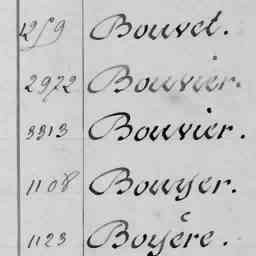 1259 Bouvet.
2972 Bouvier.
3313 Bouvier.
1108 Bouyer.
1123 Boyére.